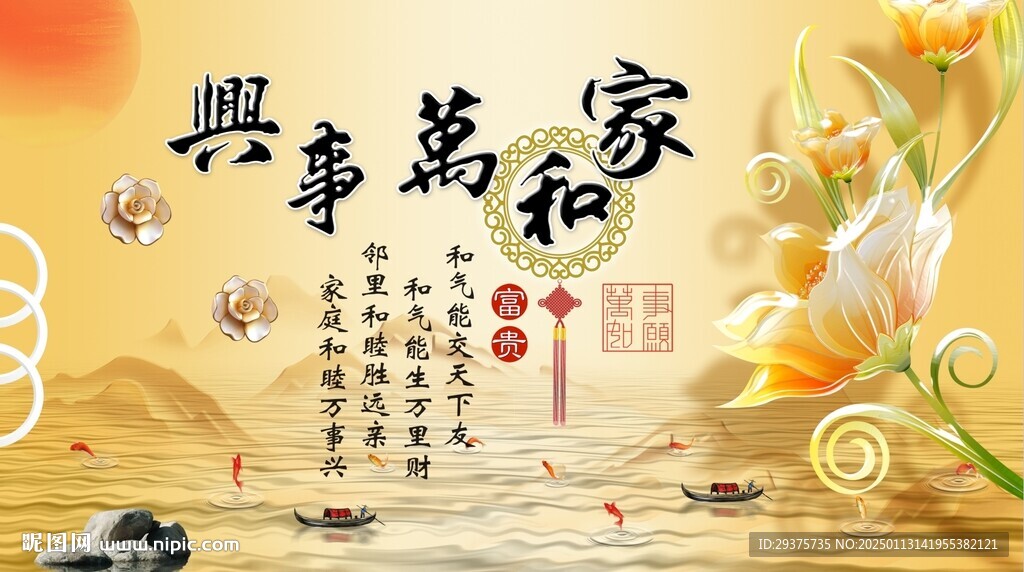 家和萬事興
和气能交天下友
和气能生万里财
邻里和睦胜远亲
家庭和睦万事兴
富贵
萬事如願
昵图网 www.nipic.com
ID:29375735 NO:20250113141955382121